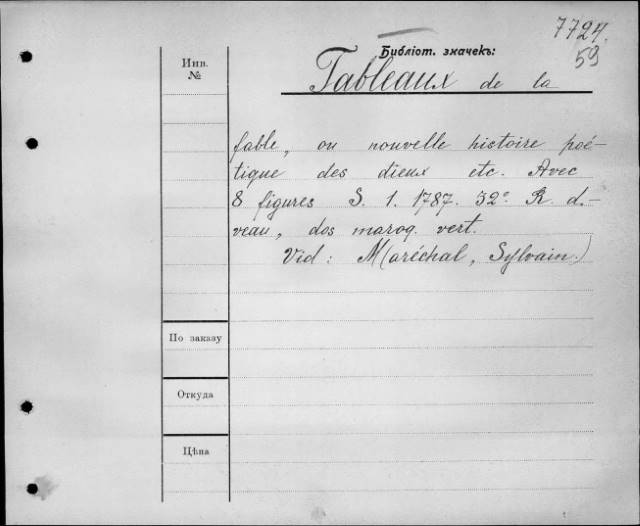 7724.
59
Библіот. значекъ:
Инв.
№
Tableaux de la
fable, ou nouvelle histoire poé-
tique des dieux etc. Avec
8 figures S. l. 1787. 32º R. d.-
veau, dos maroq. vert.
Vid: M(aréchal, Sylvain.)
По заказу
Откуда
Цѣна